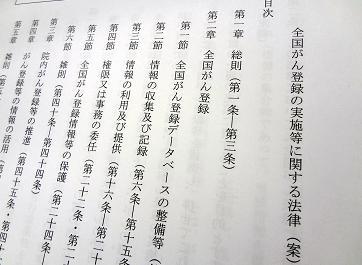 全国がん登録の実施等に関する法律(案)
目次
第一章 総則(第一条―第三条)
第二章 全国がん登録
第一節 全国がん登録データベースの整備等(
第二節 情報の収集及び記録(第六条―第
第三節 情報の利用及び提供(第十六条―第二十
第四節 権限又は事務の委任(第二十二条・第
第五節 全国がん登録情報等の保護(第二十四条―
第六節 雑則(第四十条―第四十四条)
第三章 院内がん登録等の推進(第四十五条・第四十
第四章 がん登録等の情報の活用(第四十
第五章 雑則(第五十